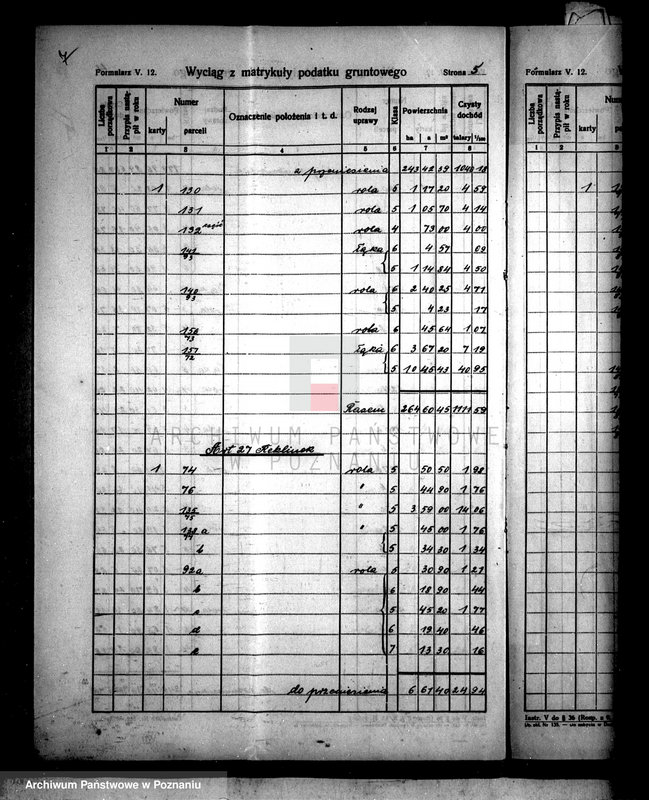 Formularz V. 12. Wyciąg z matrykuły podatku gruntowego Strona 5
Liczba porządkowa Przypis nastąpił w roku Numer karty parceli Oznaczenie położenia i t. d. Rodzaj uprawy Klasa Powierzchnia ha a m² Czysty dochód talary 1/100
1 2 3 4 5 6 7 8
z przeniesienia 243 42 39 1040 18
1 130 rola 6 1 17 20 4 59
131 rola 5 1 05 70 4 14
132 część rola 4 73 00 4 00
141/93 łąka 6 4 57 09
5 1 14 84 4 50
140/93 rola 6 2 40 25 4 71
5 4 23 17
152/73 rola 6 45 64 1 07
151/72 łąka 6 3 67 20 7 19
5 10 45 43 40 95
Razem 264 60 45 1111 59
ARCHIWUM PAŃSTWOWE
W POZNANIU
Art 27
1 74 rola 5 50 50 1 98
76 " 5 44 90 1 76
135/75 " 5 3 59 00 14 06
a " 5 45 00 1 76
b 5 34 30 1 34
92a rola 5 30 90 1 21
b 6 18 90 44
c 5 45 20 1 77
d 6 19 40 46
e 7 13 30 16
do przeniesienia 6 61 40 24 94
Formularz V. 12.
Liczba porządkowa Przypis nastąpił w roku karty
1 2
1
Instr. V do § 36 (Rozp.
Archiwum Państwowe w Poznaniu